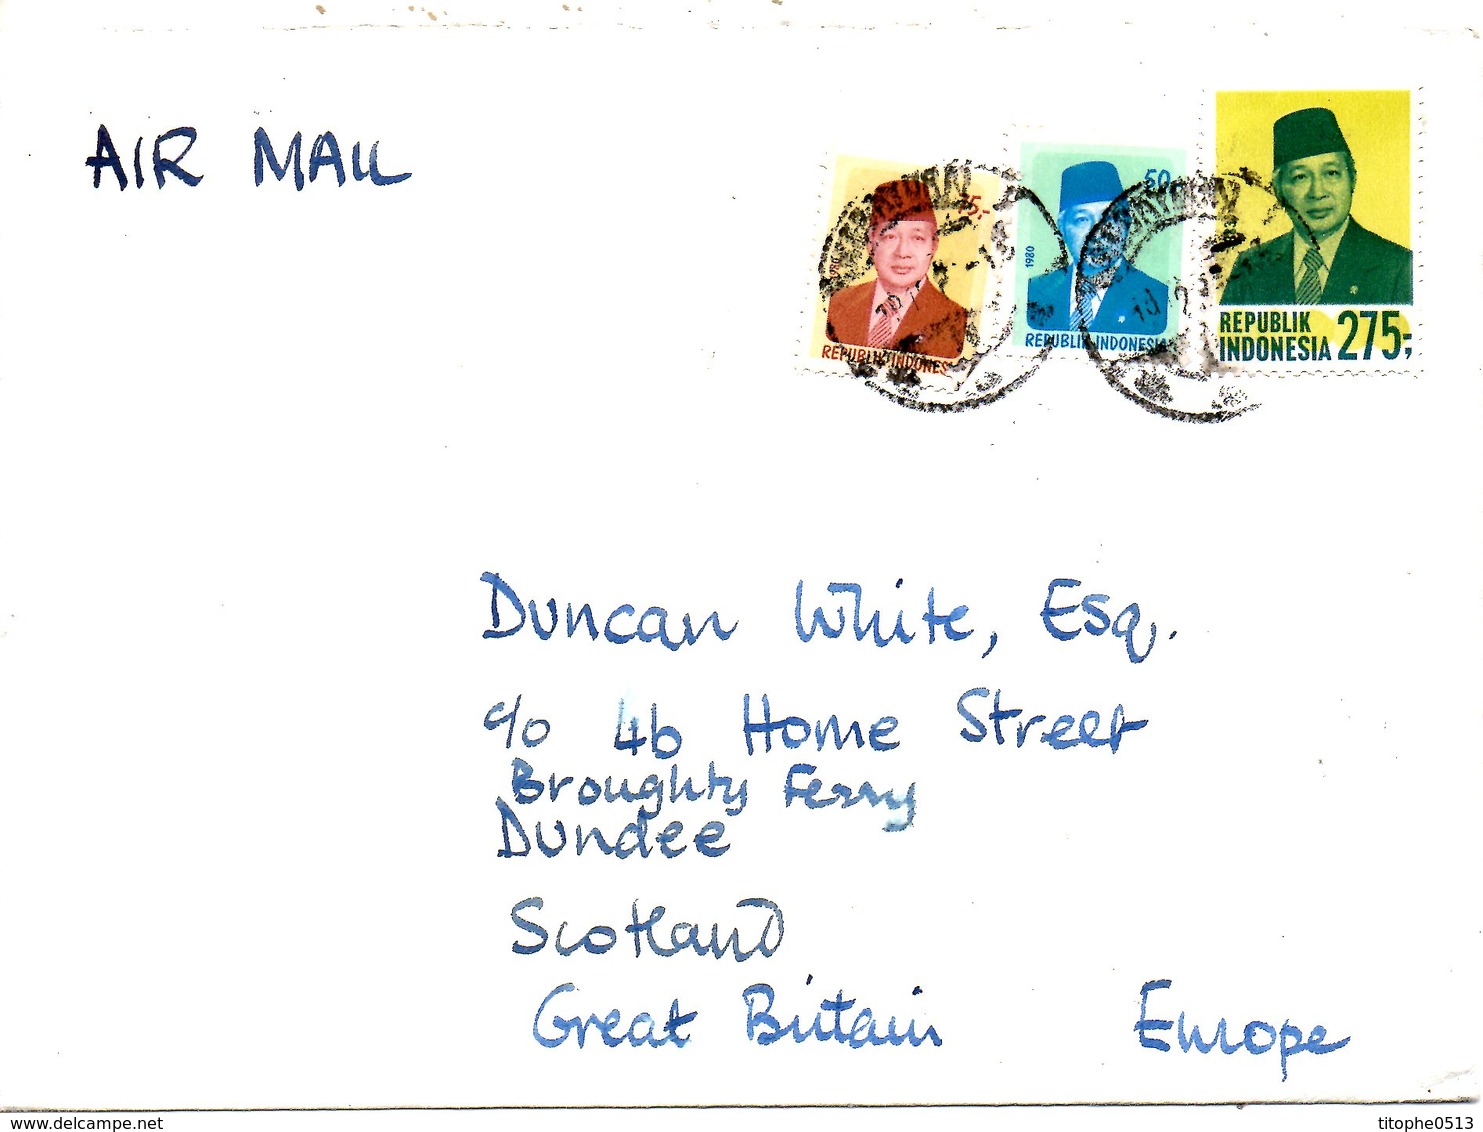 AIR MAIL
1980
REPUBLIK INDONES
50
1980
REPUBLIK INDONESIA
REPUBLIK
INDONESIA 275,-
Duncan White, Esq.
c/o 46 Home Street
Broughty Ferry
Dundee
Scotland
Great Britain Europe
www.delcampe.net
titophe0513